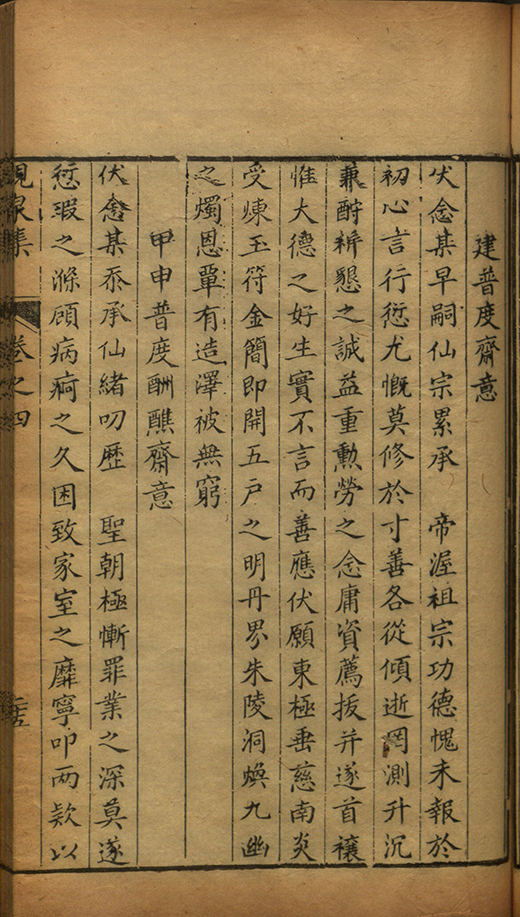 建普度齋意
伏念某早嗣仙宗累承　帝渥祖宗功德愧未報於
初心言行愆尤慨莫修於寸善各從傾逝罔測升沉
兼酧祈懇之誠益重勳勞之念庸資薦拔并遂首禳
惟大德之好生實不言而善應伏願東極垂慈南炎
受煉玉符金簡即開五戶之明丹界朱陵洞煥九幽
之燭恩覃有造澤被無窮
甲申普度酬醮齋意
伏念某忝承仙緒叨歷　聖朝極慚罪業之深莫遂
愆瑕之滌頋病痾之久困致家室之靡寧叩两欵以
峴泉集　卷之四　二十五